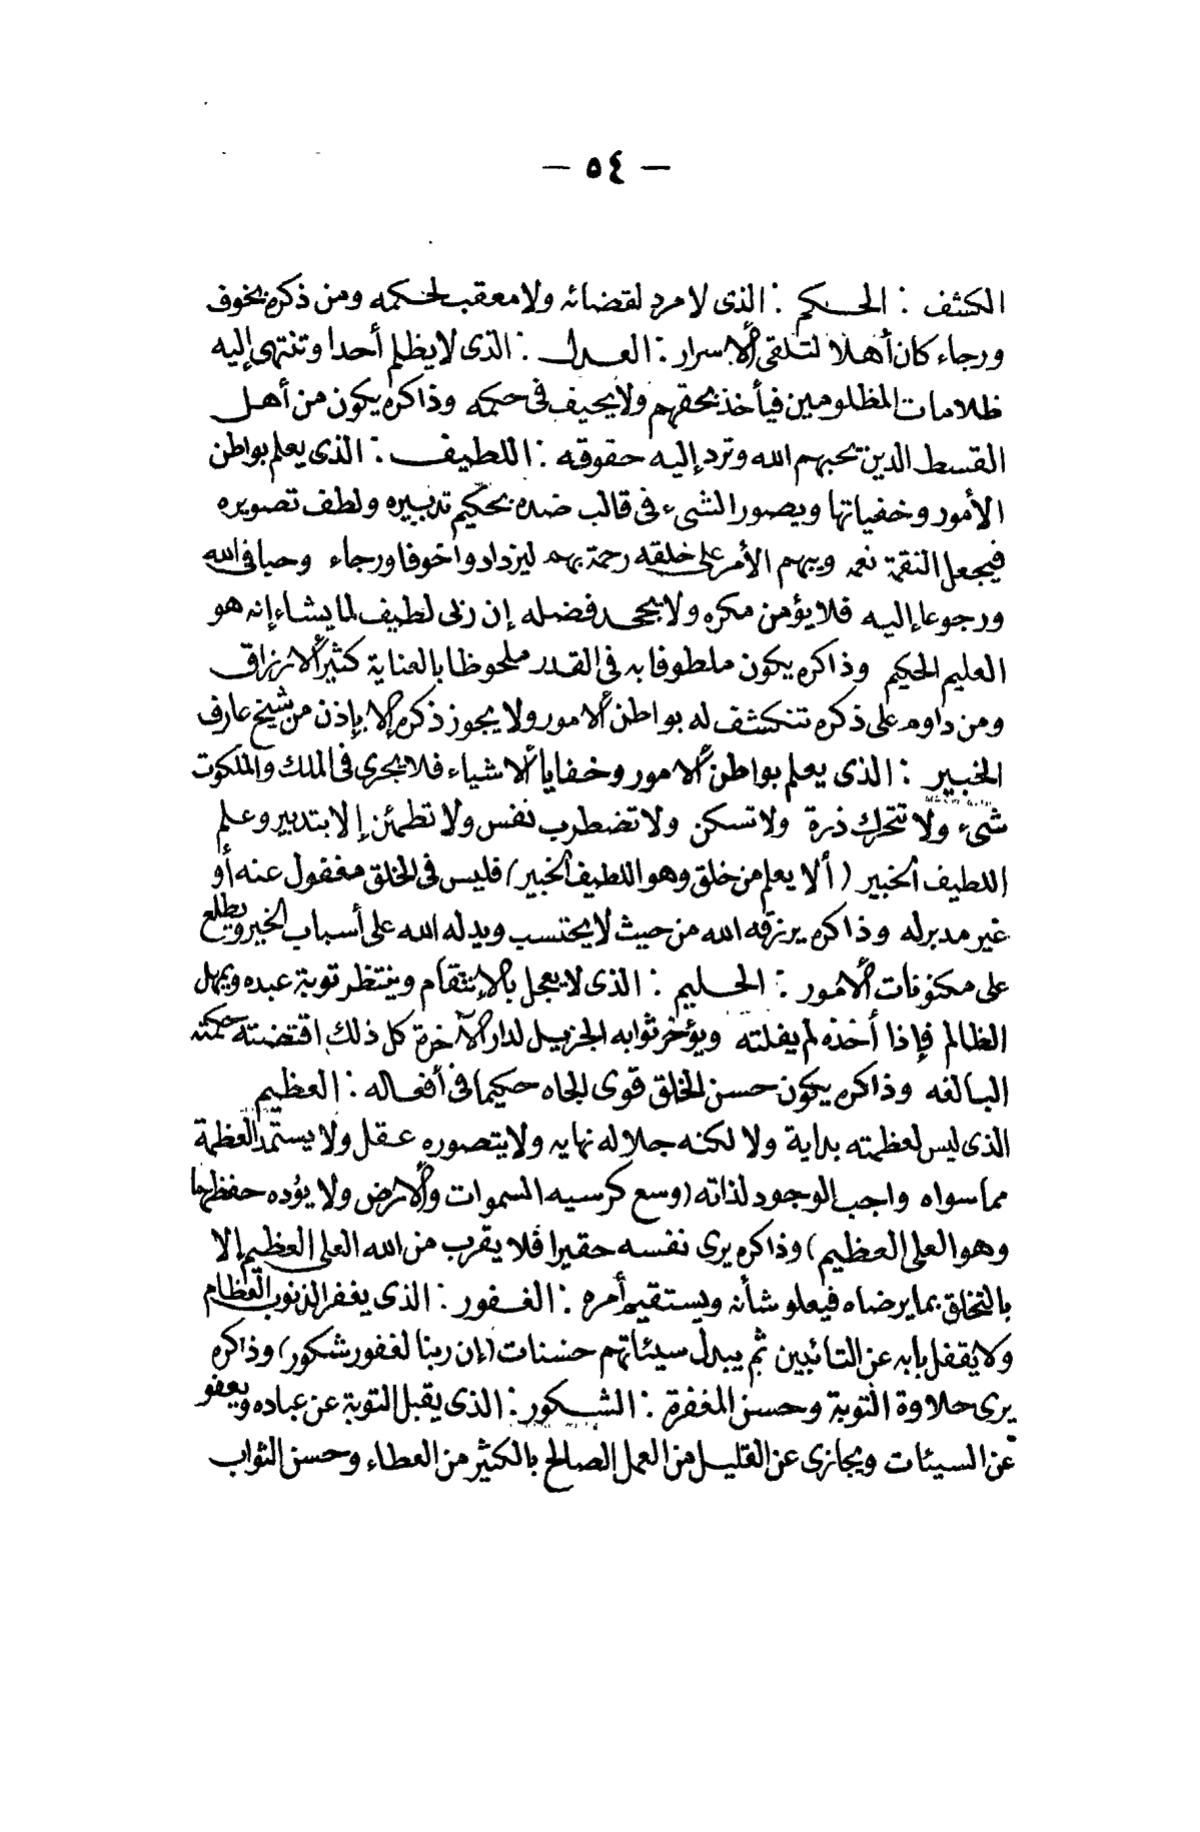 — ٥٤ —
الكشف : الحكم : الذى لا مرد لقضائه ولا معقب لحكمه ومن ذكره بخوف
ورجاء كان أهلا لتلقى الأسرار : العدل : الذى لا يظلم أحدا وتنتهى إليه
ظلامات المظلومين فيأخذ بحقهم ولا يحيف فى حكمه وذاكره يكون من أهل
القسط الذين يحبهم الله وترد إليه حقوقه : اللطيف : الذى يعلم بواطن
الأمور وخفياتها ويصور الشىء فى قالب ضده بحكيم تدبيره ولطف تصويره
فيجعل النقمة نعمه ويبهم الأمر على خلقه رحمة بهم ليزدادوا خوفا ورجاء وحبا فى الله
ورجوعا إليه فلا يؤمن مكره ولا يجحد فضله إن ربى لطيف لما يشاء إنه هو
العليم الحكيم وذاكره يكون ملطوفا به فى القدر ملحوظا بالعناية كثير الأرزاق
ومن داوم على ذكره تنكشف له بواطن الأمور ولا يجوز ذكره إلا بإذن من شيخ عارف
الخبير : الذى يعلم بواطن الأمور وخفايا الأشياء فلا يجرى فى الملك والملكوت
شىء ولا تتحرك ذرة ولا تسكن ولا تضطرب نفس ولا تطمئن إلا بتدبير وعلم
اللطيف الخبير ( ألا يعلم من خلق وهو اللطيف الخبير ) فليس فى الخلق مغفول عنه أو
غير مدبر له وذاكره يرزقه الله من حيث لا يحتسب ويدله الله على أسباب الخير ويطلع
على مكنونات الأمور : الحليم : الذى لا يعجل بالإنتقام وينتظر توبة عبده ويمهل
الظالم فإذا أخذه لم يفلته ويؤخر ثوابه الجزيل لدار الآخرة كل ذلك اقتضته حكمته
البالغه وذاكره يكون حسن الخلق قوى الجاه حكيما فى أفعاله : العظيم
الذى ليس لعظمته بداية ولا لكنه جلاله نهايه ولا يتصوره عقل ولا يستمد العظمة
مما سواه واجب الوجود لذاته ( وسع كرسيه السموات والأرض ولا يؤده حفظهما
وهو العلى العظيم ) وذاكره يرى نفسه حقيرا فلا يقرب من الله العلى العظيم إلا
بالتخلق بما يرضاه فيعلو شأنه ويستقيم أمره : الغفور : الذى يغفر الذنوب العظام
ولا يقفل بابه عن التائبين ثم يبدل سيئاتهم حسنات ( إن ربنا لغفور شكور ) وذاكره
يرى حلاوة التوبة وحسن المغفرة : الشكور : الذى يقبل التوبة عن عباده ويعفو
عن السيئات ويجازى عن القليل من العمل الصالح بالكثير من العطاء وحسن الثواب